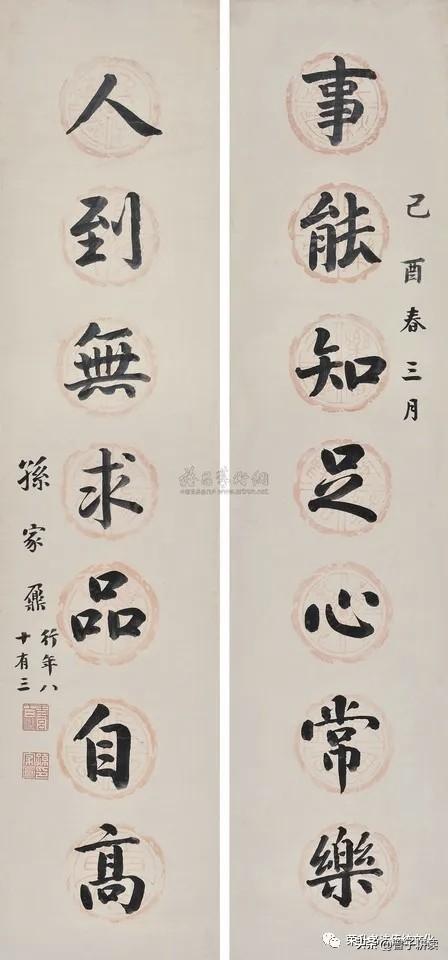 己酉春三月
事能知足心常樂
人到無求品自高
孫家鼐
行年八
十有三
雅昌藝術網